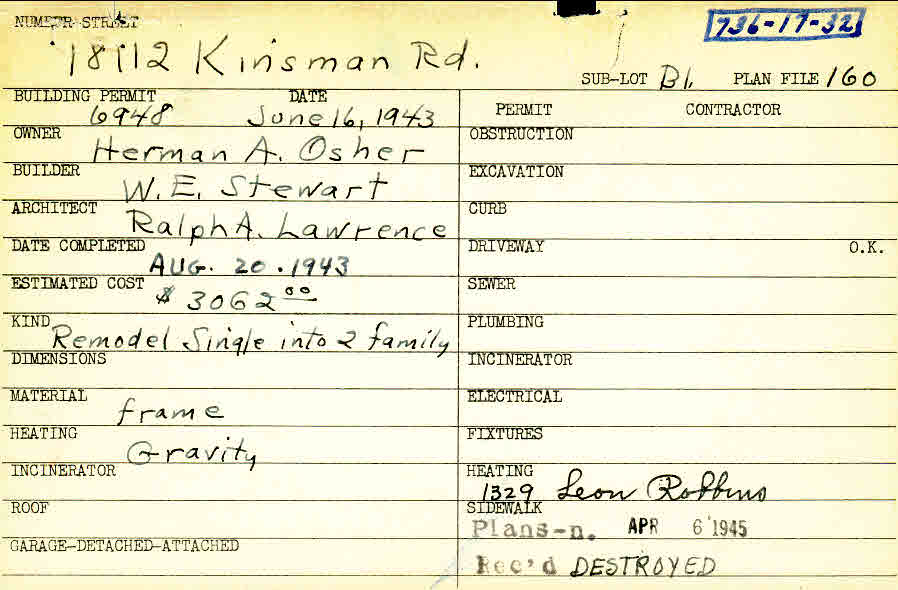 NUMBER STREET
736-17-32
18112 Kinsman Rd.
SUB-LOT Bl. PLAN FILE 160
BUILDING PERMIT DATE
6948 June 16, 1943
OWNER
Herman A. Osher
BUILDER
W.E. Stewart
ARCHITECT
Ralph A. Lawrence
DATE COMPLETED
AUG. 20. 1943
ESTIMATED COST
$ 3062 00
KIND
Remodel Single into 2 family
DIMENSIONS
MATERIAL
frame
HEATING
Gravity
INCINERATOR
ROOF
GARAGE-DETACHED-ATTACHED
PERMIT CONTRACTOR
OBSTRUCTION
EXCAVATION
CURB
DRIVEWAY O.K.
SEWER
PLUMBING
INCINERATOR
ELECTRICAL
FIXTURES
HEATING
1329 Leon Robbins
SIDEWALK
Plans-n. APR 6 1945
Rec'd DESTROYED